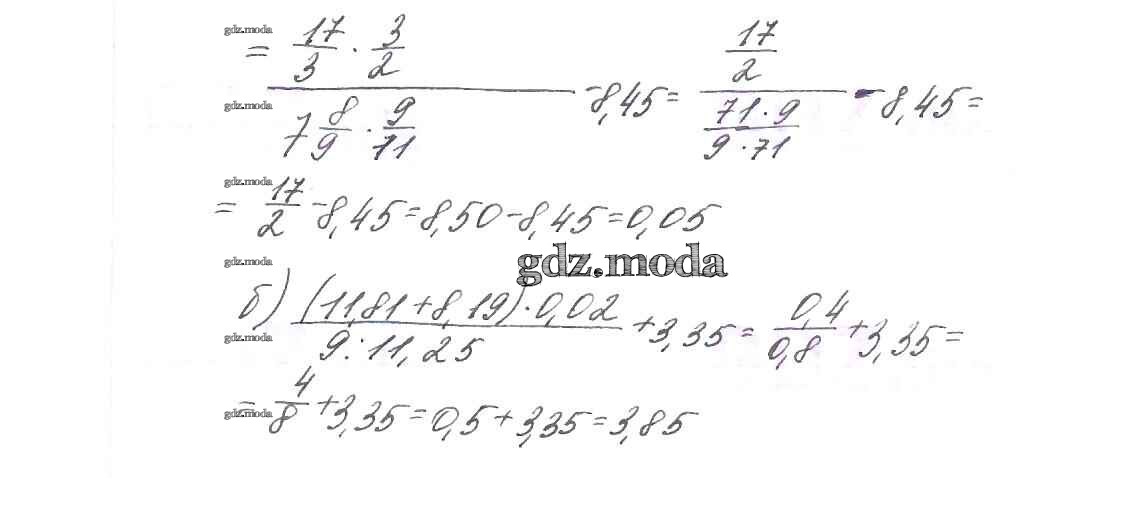 gdz.moda
= 17/3 · 3/2 / 7 8/9 · 9/71 - 8,45 = 17/2 / 71·9/9·71 - 8,45 =
gdz.moda
gdz.moda
= 17/2 - 8,45 = 8,50 - 8,45 = 0,05
gdz.moda
gdz.moda
б) (11,81 + 8,19) · 0,02 / 9 : 11,25 + 3,35 = 0,4/0,8 + 3,35 =
gdz.moda
gdz.moda
= 4/8 + 3,35 = 0,5 + 3,35 = 3,85